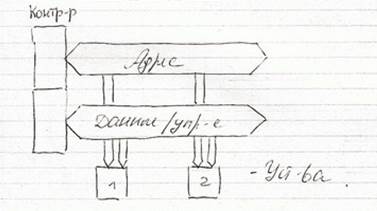 Контр-р
Адрес
Данные/упр-е
1 2 - Уст-ва.